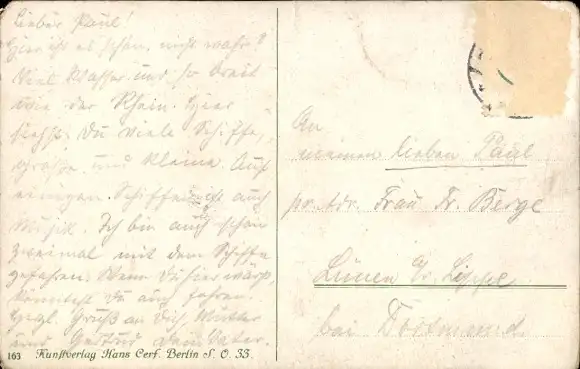 Lieber Paul!
Hier ist es schön, nicht wahr?
Viel Wasser und so breit
wie der Rhein. Hier
siehst Du viele Schiffe,
große und kleine. Auf
einigen Schiffen ist auch
Musik. Ich bin auch schon
zweimal mit dem Schiffe
gefahren. Wenn Du hier wärst,
könntest Du auch fahren.
Herzl. Gruß an Dich, Mutter
und Gertrud Dein Vater.
An
meinen lieben Paul
pr. Adr. Frau Fr. Berge
Lünen a/Lippe
bei Dortmund.
163 Kunstverlag Hans Cerf. Berlin S. O. 33.